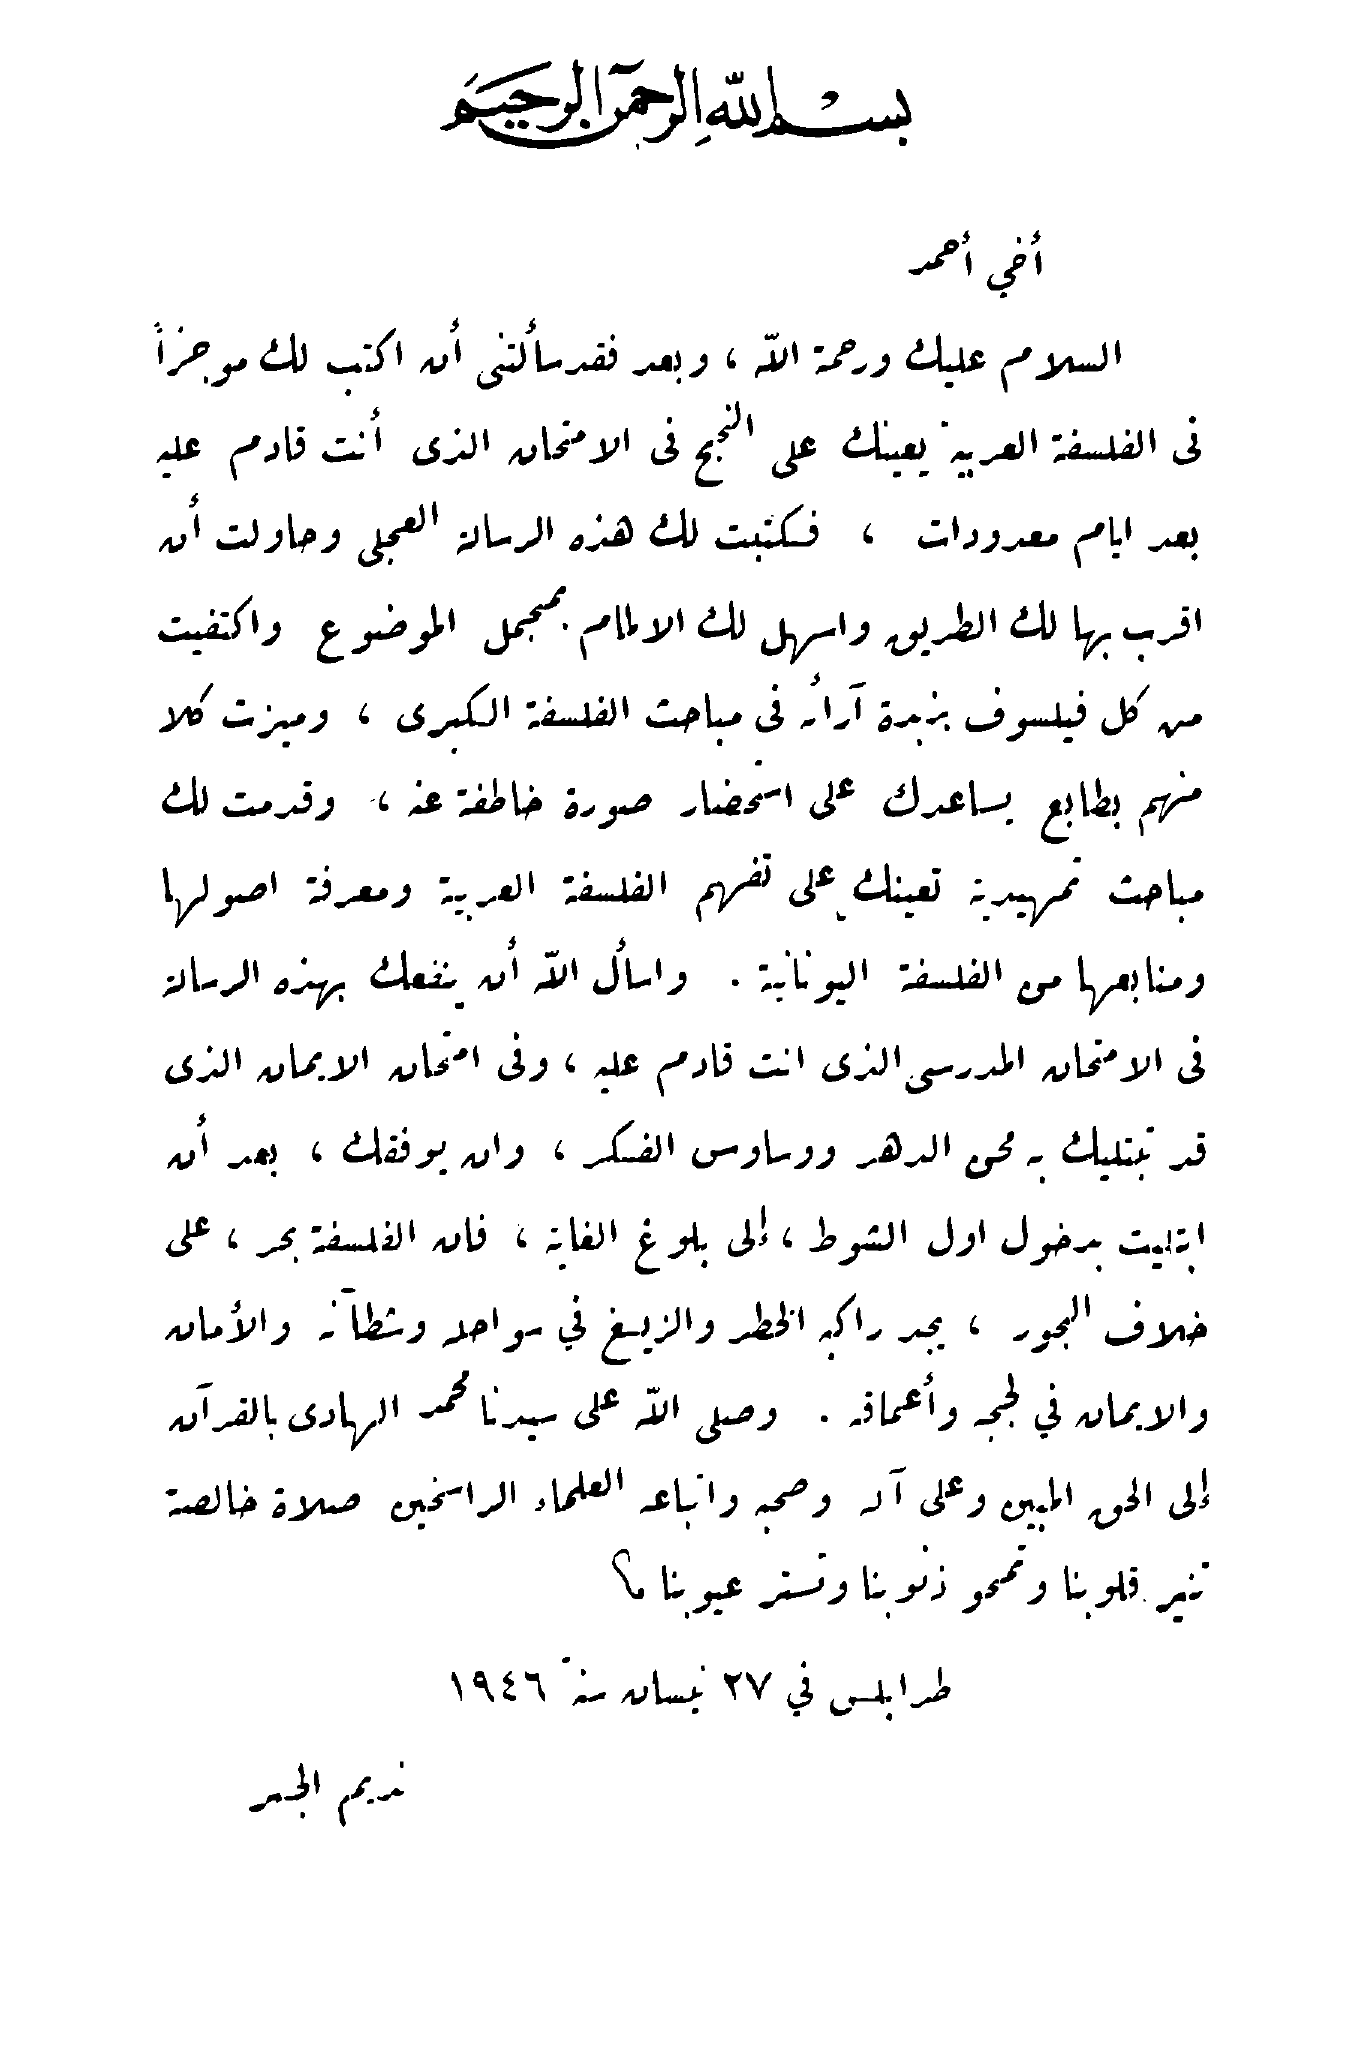 بسم الله الرحمن الرحيم
أخي أحمد
السلام عليك ورحمة الله ، وبعد فقد سألتنى أن اكتب لك موجزاً
فى الفلسفة العربية يعينك على النجح فى الامتحان الذى أنت قادم عليه
بعد ايام معدودات ، فكتبت لك هذه الرسالة العجلى وحاولت أن
اقرب بها لك الطريق واسهل لك الالمام بمجمل الموضوع واكتفيت
من كل فيلسوف بزبدة آرائه فى مباحث الفلسفة الكبرى ، وميزت كلا
منهم بطابع يساعدك على استحضار صورة خاطفة عنه ، وقدمت لك
مباحث تمهيدية تعينك على تفهم الفلسفة العربية ومعرفة اصولها
ومنابعها من الفلسفة اليونانية . واسأل الله أن ينفعك بهذه الرسالة
فى الامتحان المدرسى الذى انت قادم عليه ، وفى امتحان الايمان الذى
قد تبتليك به محن الدهر ووساوس الفكر ، وان يوفقك ، بعد أن
ابتليت بدخول اول الشوط ، إلى بلوغ الغاية ، فان الفلسفة بحر ، على
خلاف البحور ، يجد راكبه الخطر والزيغ في سواحله وشطآنه والأمان
والايمان في لججه وأعماقه . وصلى الله على سيدنا محمد الهادى بالقرآن
إلى الحق المبين وعلى آله وصحبه واتباعه العلماء الراسخين صلاة خالصة
تنير قلوبنا وتمحو ذنوبنا وتستر عيوبنا
طرابلس في ٢٧ نيسان سنة ١٩٤٦
نديم الجسر